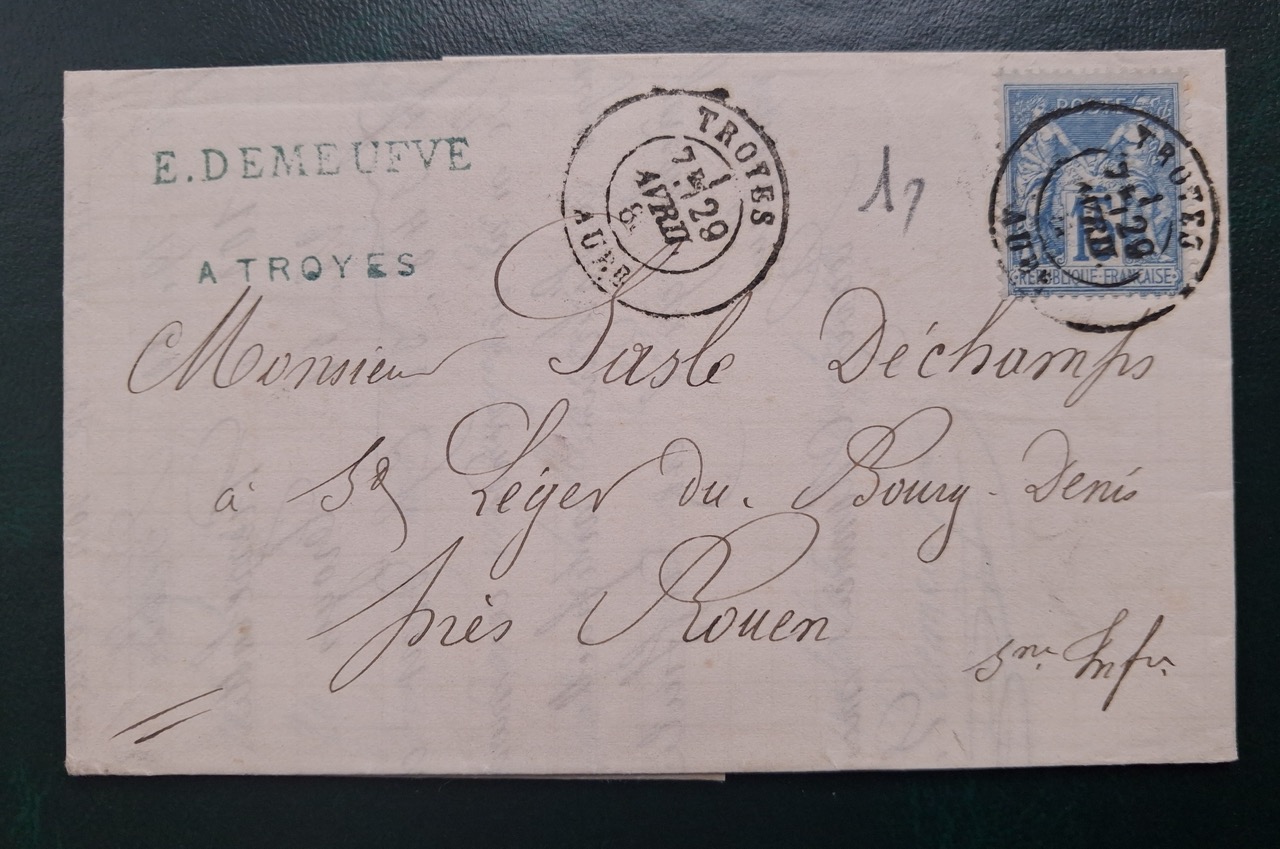 E. DEMEUFVE
A TROYES
TROYES
7E 1
29
AVRIL
8
AUBE
17
POSTE
15
REPUBLIQUE FRANCAISE
TROYES
7E 1
29
AVRIL
AUBE
Monsieur Pasle Déchamps
à St Léger du Bourg-Denis
près Rouen
Sne Infre